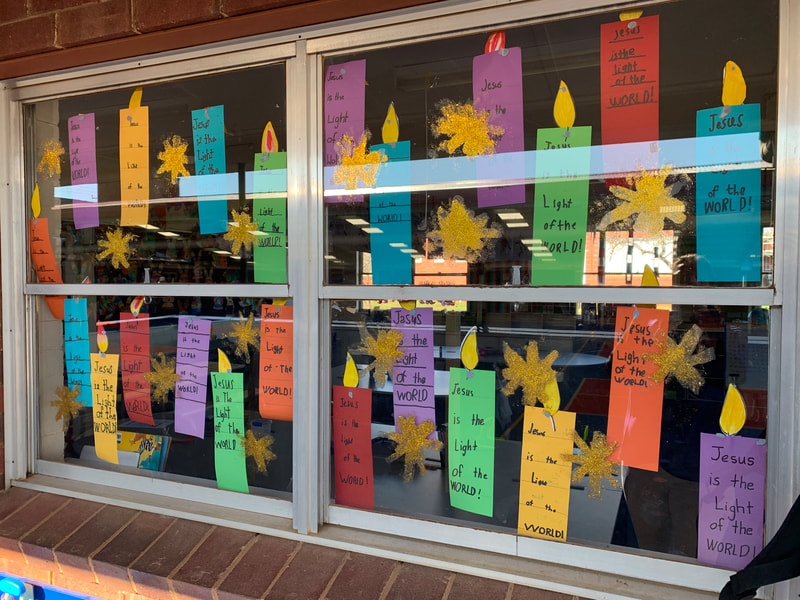 Jesus
is the
Light
of the
WORLD!
Jesus
is the
Light
of the
Jesus
is the
Light
of the
WORLD!
Jesus
is the
Light
of the
WORLD!
Jesus
is the
Jesus
the
Jesus
is the
Light
of the
WORLD!
Jesus
is the
Light
of the
WORLD!
Jesus
of the
WORLD!
WORLD!
Jesus
is the
Light
of the
WORLD!
Jesus
is the
Light
of the
WORLD!
Jesus
is the
Light
of the
Jesus
is the
Light
of the
WORLD!
Jesus
is the
Light
of The
WORLD!
Jesus
is the
light
of the
WORLD!
Jesus
is the
Light
of the
WORLD
Jesus
is the
Light
of the
WORLD!
Jesus
is the
of the
WORLD!
Jesus
the
Light
of the
WORLD!
Jesus
is the
Light
of the
WORLD!